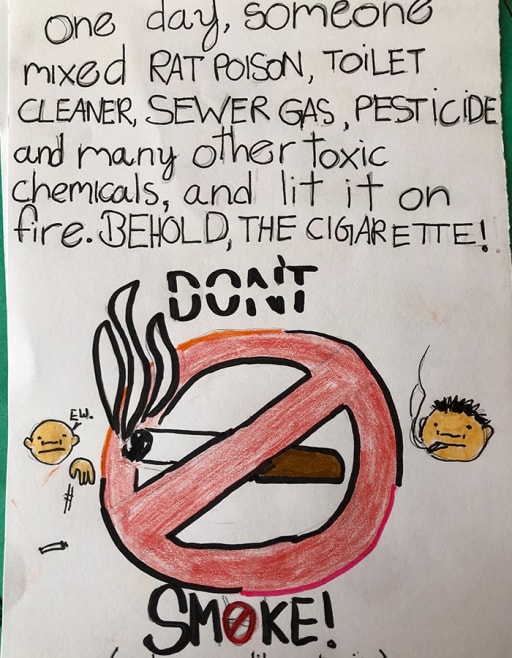 One day, someone
mixed RAT POISON, TOILET
CLEANER, SEWER GAS, PESTICIDE
and many other toxic
chemicals, and lit it on
fire. BEHOLD, THE CIGARETTE!
DON'T
EW.
SMOKE!